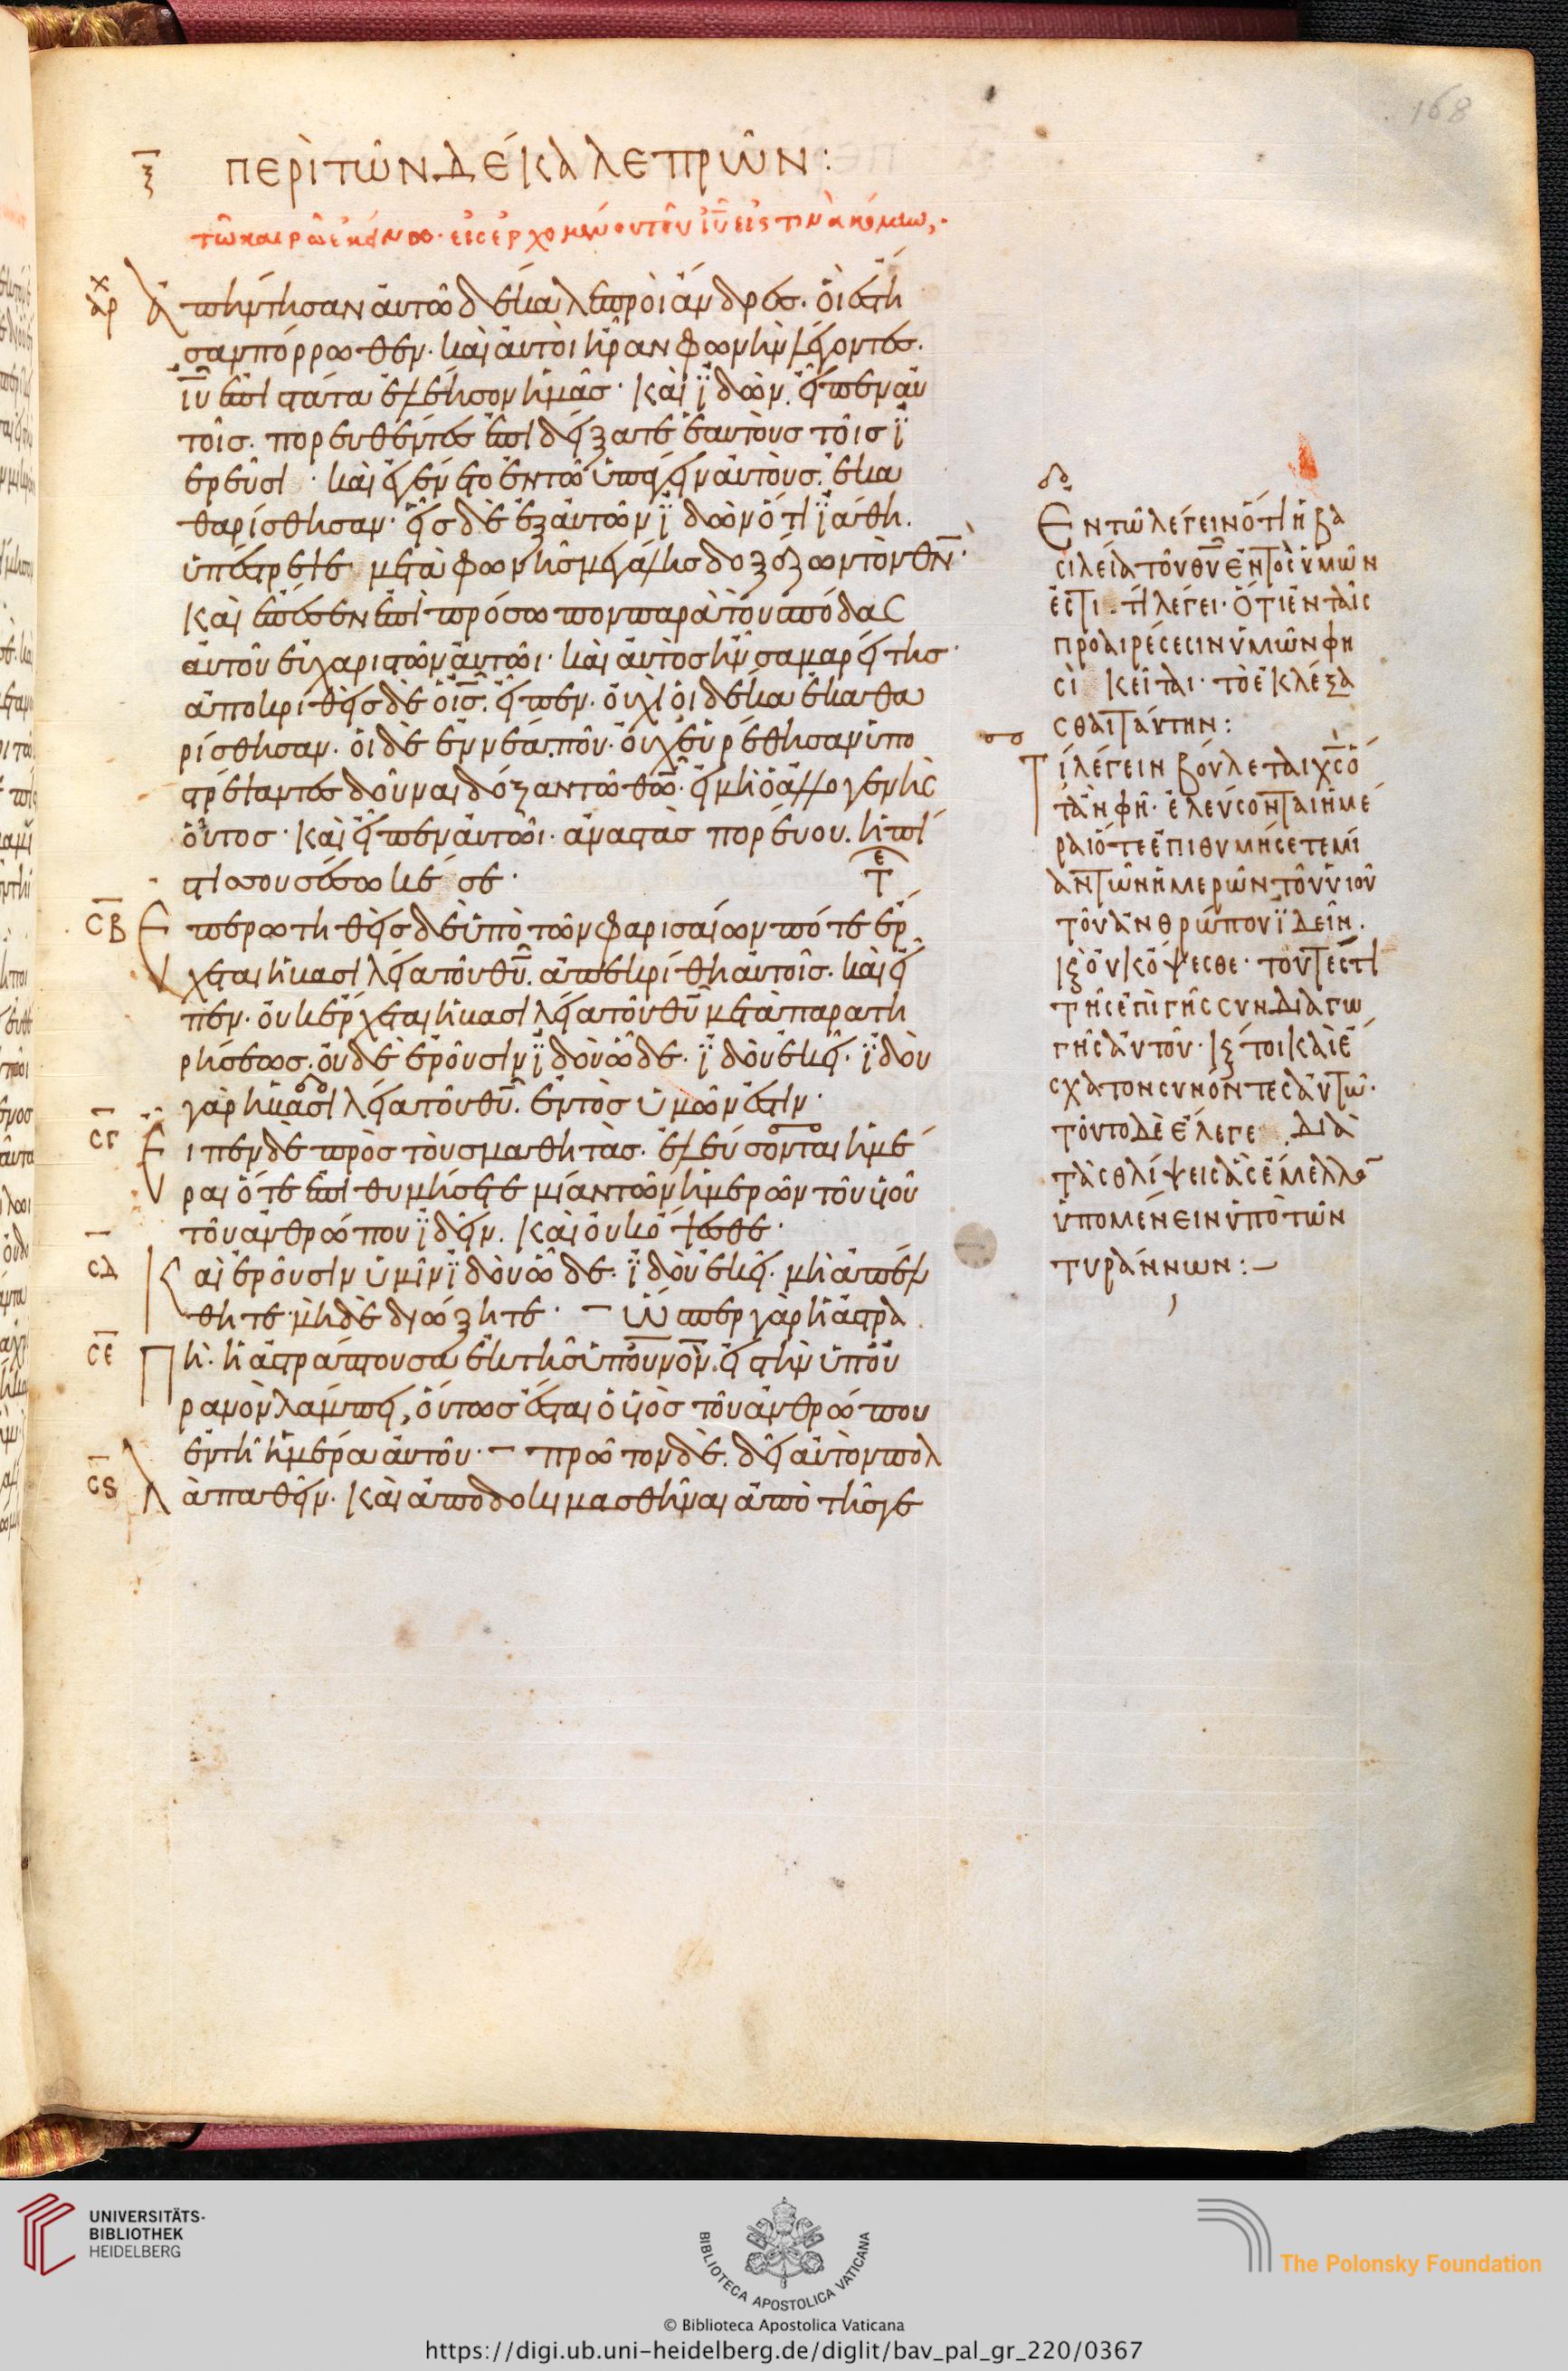 168
ξ ΠΕΡῚ ΤΩ͂Ν ΔΈΚΑ ΛΕΠΡΩ͂Ν:
τῶ καιρῶ ἐκείνω· εἰσερχομένου τοῦ ἰῦ εἴς τινα κώμην,·
ἀρχ ἀπήντησαν αὐτῶ δέκα λεπροὶ ἄνδρες. οἳ ἔστη
σαν πόρρωθεν· καὶ αὐτοὶ ἦραν φωνὴν λέγοντες.
ἰῦ ἐπιστάτα ἐλέησον ἡμᾶς· καὶ ἰδὼν. εἶπεν αὐ
τοῖς. πορευθέντες ἐπιδείξατε ἑαυτοὺς τοῖς ἱ
ερεῦσι· καὶ ἐγένετο ἐν τῶ ὑπάγειν αὐτοὺς. ἐκα
θαρίσθησαν· εἷς δὲ ἐξ αὐτῶν ἰδὼν ὅτι ἰάθη.
ὑπέστρεψε μετὰ φωνῆς μεγάλης δοξάζων τὸν θν·
καὶ ἔπεσεν ἐπὶ πρόσωπον παρὰ τοὺς πόδας
αὐτοῦ εὐχαριστῶν αὐτῶι· καὶ αὐτὸς ἦν σαμαρείτης·
ἀποκριθεὶς δὲ ὁ ις. εἶπεν· οὐχὶ οἱ δέκα ἐκαθα
ρίσθησαν· οἱ δὲ ἐννέα ποῦ· οὐχ εὑρέθησαν ὑπο
στρέψαντες δοῦναι δόξαν τῶ θω· εἰ μὴ ὁ ἀλλογενὴς
οὗτος· καὶ εἶπεν αὐτῶι· ἀναστὰς πορεύου. ἡ πί
στις σου σέσωκέ σε· τε
ΣΒ Ἐπερωτηθεὶς δὲ ὑπὸ τῶν φαρισαίων πότε ἔρ
χεται ἡ βασιλεία τοῦ θυ. ἀπεκρίθη αὐτοῖς. καὶ εἶ
πεν. οὐκ ἔρχεται ἡ βασιλεία τοῦ θυ μετὰ παρατη
ρήσεως. οὐδὲ ἐροῦσιν ἰδοὺ ὧδε. ἰδοὺ ἐκεῖ. ἰδοὺ
γὰρ ἡ βασιλεία τοῦ θυ. ἐντὸς ὑμῶν ἐστίν·
ΣΓ Εἶπεν δὲ πρὸς τοὺς μαθητάς. ἐλεύσονται ἡμέ
ραι ὅτε ἐπιθυμήσετε μίαν τῶν ἡμερῶν τοῦ υἱοῦ
τοῦ ἀνθρώπου ἰδεῖν. καὶ οὐκ ὄψεσθε·
ΣΔ Καὶ ἐροῦσιν ὑμῖν ἰδοὺ ὧδε. ἰδοὺ ἐκεῖ. μὴ ἀπέλ
θητε· μηδὲ διώξητε· — Ὥσπερ γὰρ ἡ ἀστρα
ΣΕ πὴ· ἡ ἀστράπτουσα ἐκ τῆς ὑπ' οὐνὸν. εἰς τὴν ὑπ' οὐ
ρανὸν λάμπει, οὕτως ἔσται ὁ υἱὸς τοῦ ἀνθρώπου
ἐν τῆ ἡμέρα αὐτοῦ· — πρῶτον δὲ. δεῖ αὐτὸν πολ
ΣϚ λὰ παθεῖν. καὶ ἀποδοκιμασθῆναι ἀπὸ τῆς γε
Ἐν τῶ λέγειν ὅτι ἡ βα
σιλεία τοῦ θυ ἐντὸς ὑμῶν
ἐστι. τί λέγει· ὅτι ἐν ταῖς
προαιρέσεσιν ὑμῶν φη
σὶ κεῖται· τὸ ἐκλέξα
σθαι ταύτην:
Τί λέγειν βούλεται χς ὅ
τὰν φῆ· ἐλεύσονται ἡμέ
ραι ὅτε ἐπιθυμήσετε μί
αν τῶν ἡμερῶν τοῦ υἱοῦ
τοῦ ἀνθρώπου ἰδεῖν.
κ οὐκ ὄψεσθε· τουτέστι
τῆς ἐπὶ γῆς συνδιαγω
γῆς αὐτοῦ· κ τοι καὶ ἔ
σχατον συνόντες αὐτῶ·
τοῦτο δὲ ἔλεγε διὰ
τὰς θλίψεις ἃς ἔμελλο
ὑπομένειν ὑπὸ τῶν
τυράννων:—
UNIVERSITÄTS-
BIBLIOTHEK
HEIDELBERG
BIBLIOTECA APOSTOLICA VATICANA
The Polonsky Foundation
© Biblioteca Apostolica Vaticana
https://digi.ub.uni-heidelberg.de/diglit/bav_pal_gr_220/0367